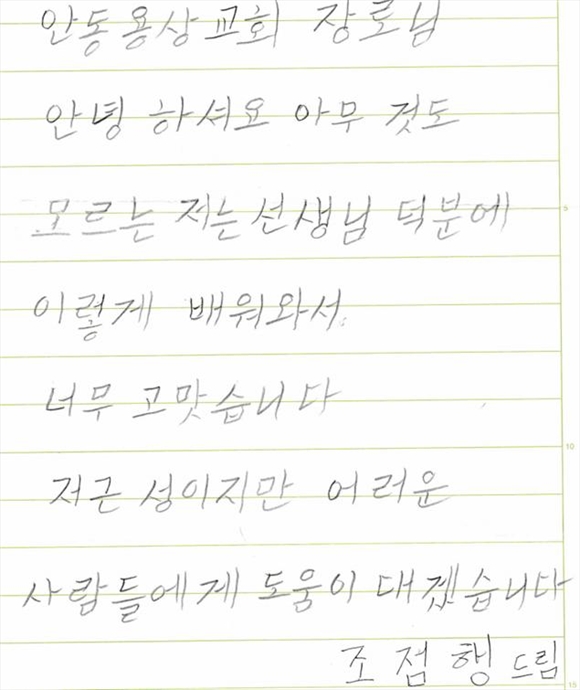 안동용상교회 장로님
안녕 하셔요 아무 것도
모르는 저는 선생님 덕분에
이렇게 배워와서
너무 고맛습니다
저근 성이지만 어려운
사람들에게 도움이 대겠습니다
조점행 드림
5
10
15